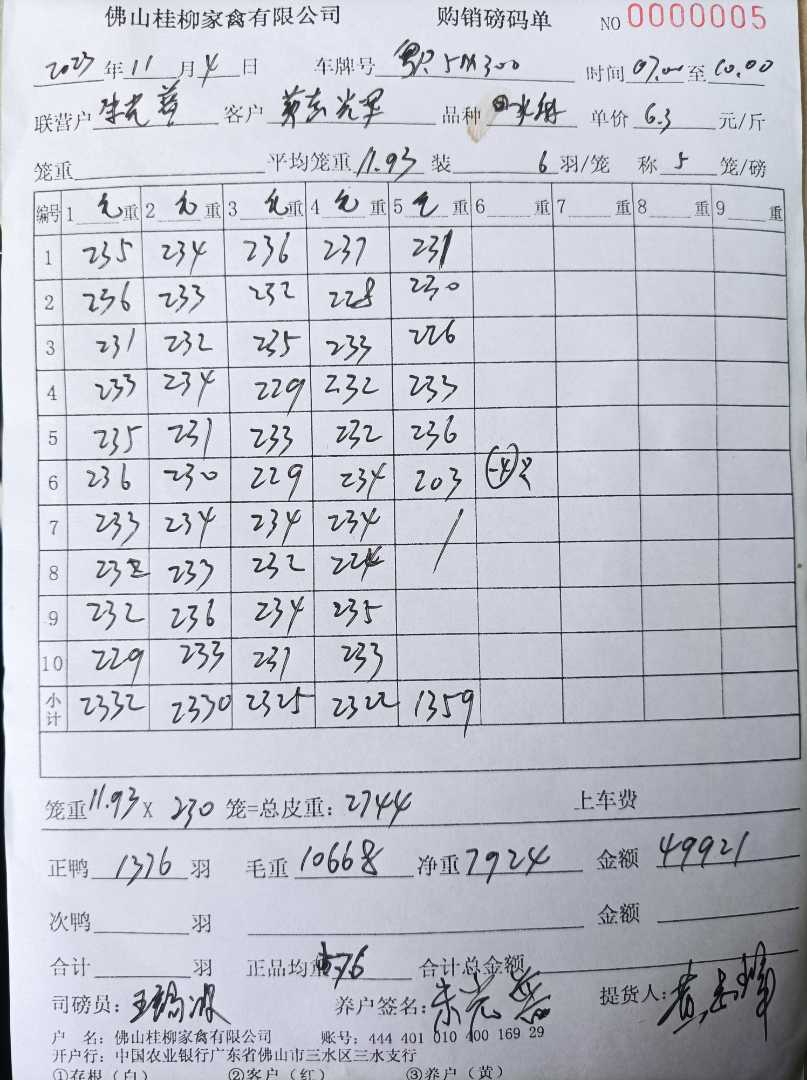 佛山桂柳家禽有限公司 购销磅码单 NO 0000005
2023年11月4日 车牌号 5M300 时间07.00至10.00
联营户 客户 品种 单价 6.3 元/斤
笼重 平均笼重 11.93 装 6 羽/笼 称 5 笼/磅
编号 1 毛 重 2 毛 重 3 毛 重 4 毛 重 5 毛 重 6 重 7 重 8 重 9 重
1 235 234 236 237 231
2 236 233 232 228 230
3 231 232 235 233 226
4 233 234 229 232 233
5 235 231 233 232 236
6 236 230 229 234 203 -4
7 233 234 234 234 /
8 232 233 232 224
9 232 236 234 235
10 229 233 231 233
小计 2332 2330 2325 2322 1359
笼重11.93 X 230 笼=总皮重: 2744 上车费
正鸭 1376 羽 毛重 10668 净重 7924 金额 49921
次鸭 羽 金额
合计 羽 正品均重 76 合计总金额
司磅员: 养户签名: 提货人:
户 名: 佛山桂柳家禽有限公司 账号: 444 401 010 400 169 29
开户行: 中国农业银行广东省佛山市三水区三水支行
①存根(白) ②客户(红) ③养户(黄)